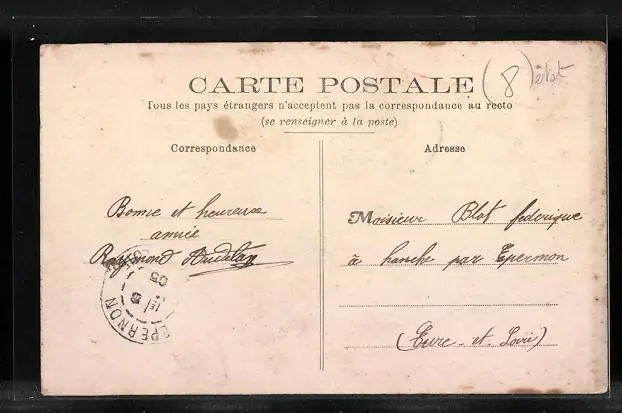 CARTE POSTALE
(8)
Tous les pays étrangers n'acceptent pas la correspondance au recto
(se renseigner à la poste)
Correspondance
Adresse
Bonne et heureuse
année
Raymond
Monsieur Blot federique
à hanche par Epernon
(Eure-et-Loire)
EPERNON
05